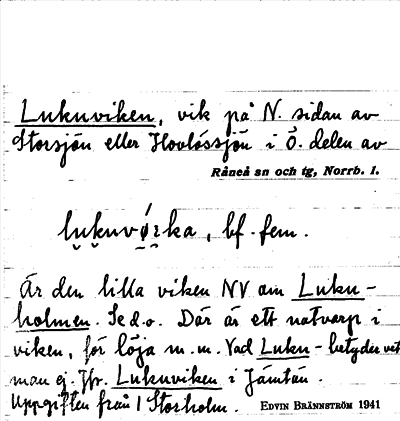 Lukuviken, vik på N. sidan av
Storsjön eller Hovlössjön i Ö. delen av
Råneå sn och tg, Norrb. l.
bf. fem.
Är den lilla viken NV om Luku-
holmen. Se d.o. Där är ett notvarp i
viken, för löja m.m. Vad Luku- betyder vet
man ej. Jfr. Lukuviken i Jämtön.
Uppgiften från 1 Storholm. EDVIN BRÄNNSTRÖM 1941